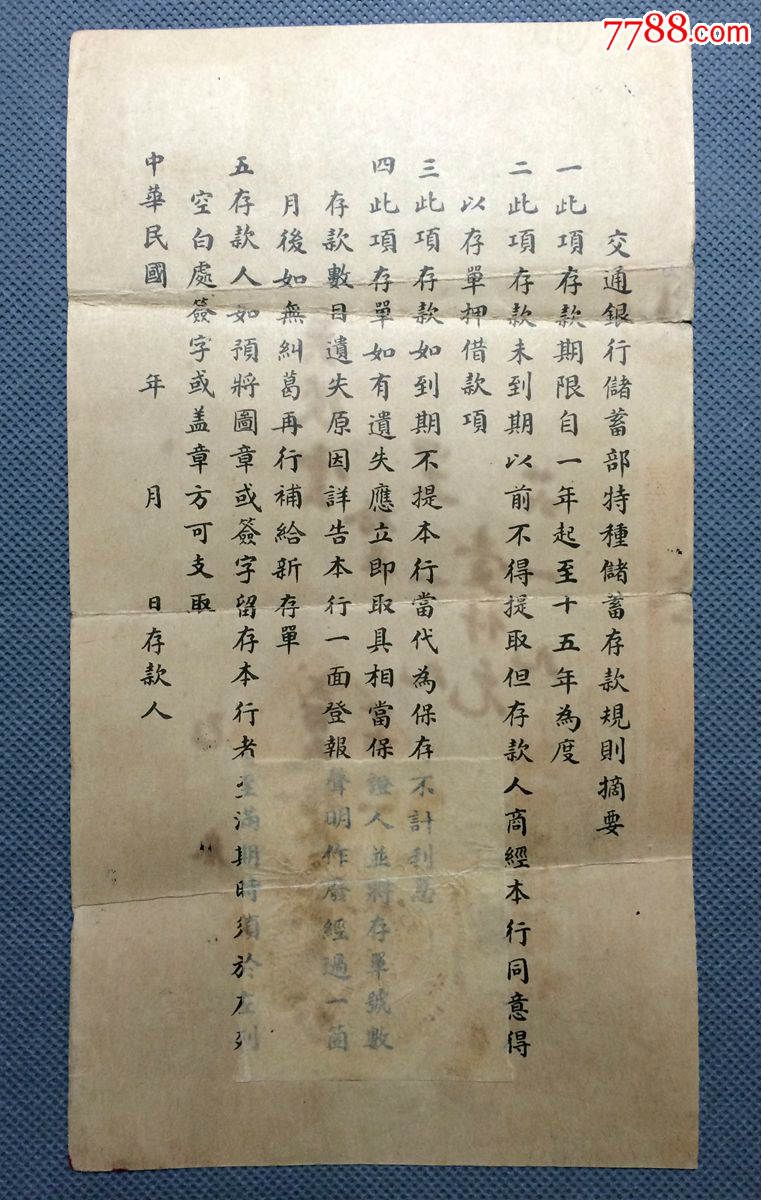 7788.com
交通銀行儲蓄部特種儲蓄存款規則摘要
一此項存款期限自一年起至十五年為度
二此項存款未到期以前不得提取但存款人商經本行同意得
以存單押借款項
三此項存款如到期不提本行當代為保存不計利息
四此項存單如有遺失應立即取具相當保證人並將存單號數
存款數目遺失原因詳告本行一面登報聲明作廢經過一箇
月後如無糾葛再行補給新存單
五存款人如預將圖章或簽字留存本行者至滿期時須於左列
空白處簽字或盖章方可支取
中華民國 年 月 日存款人